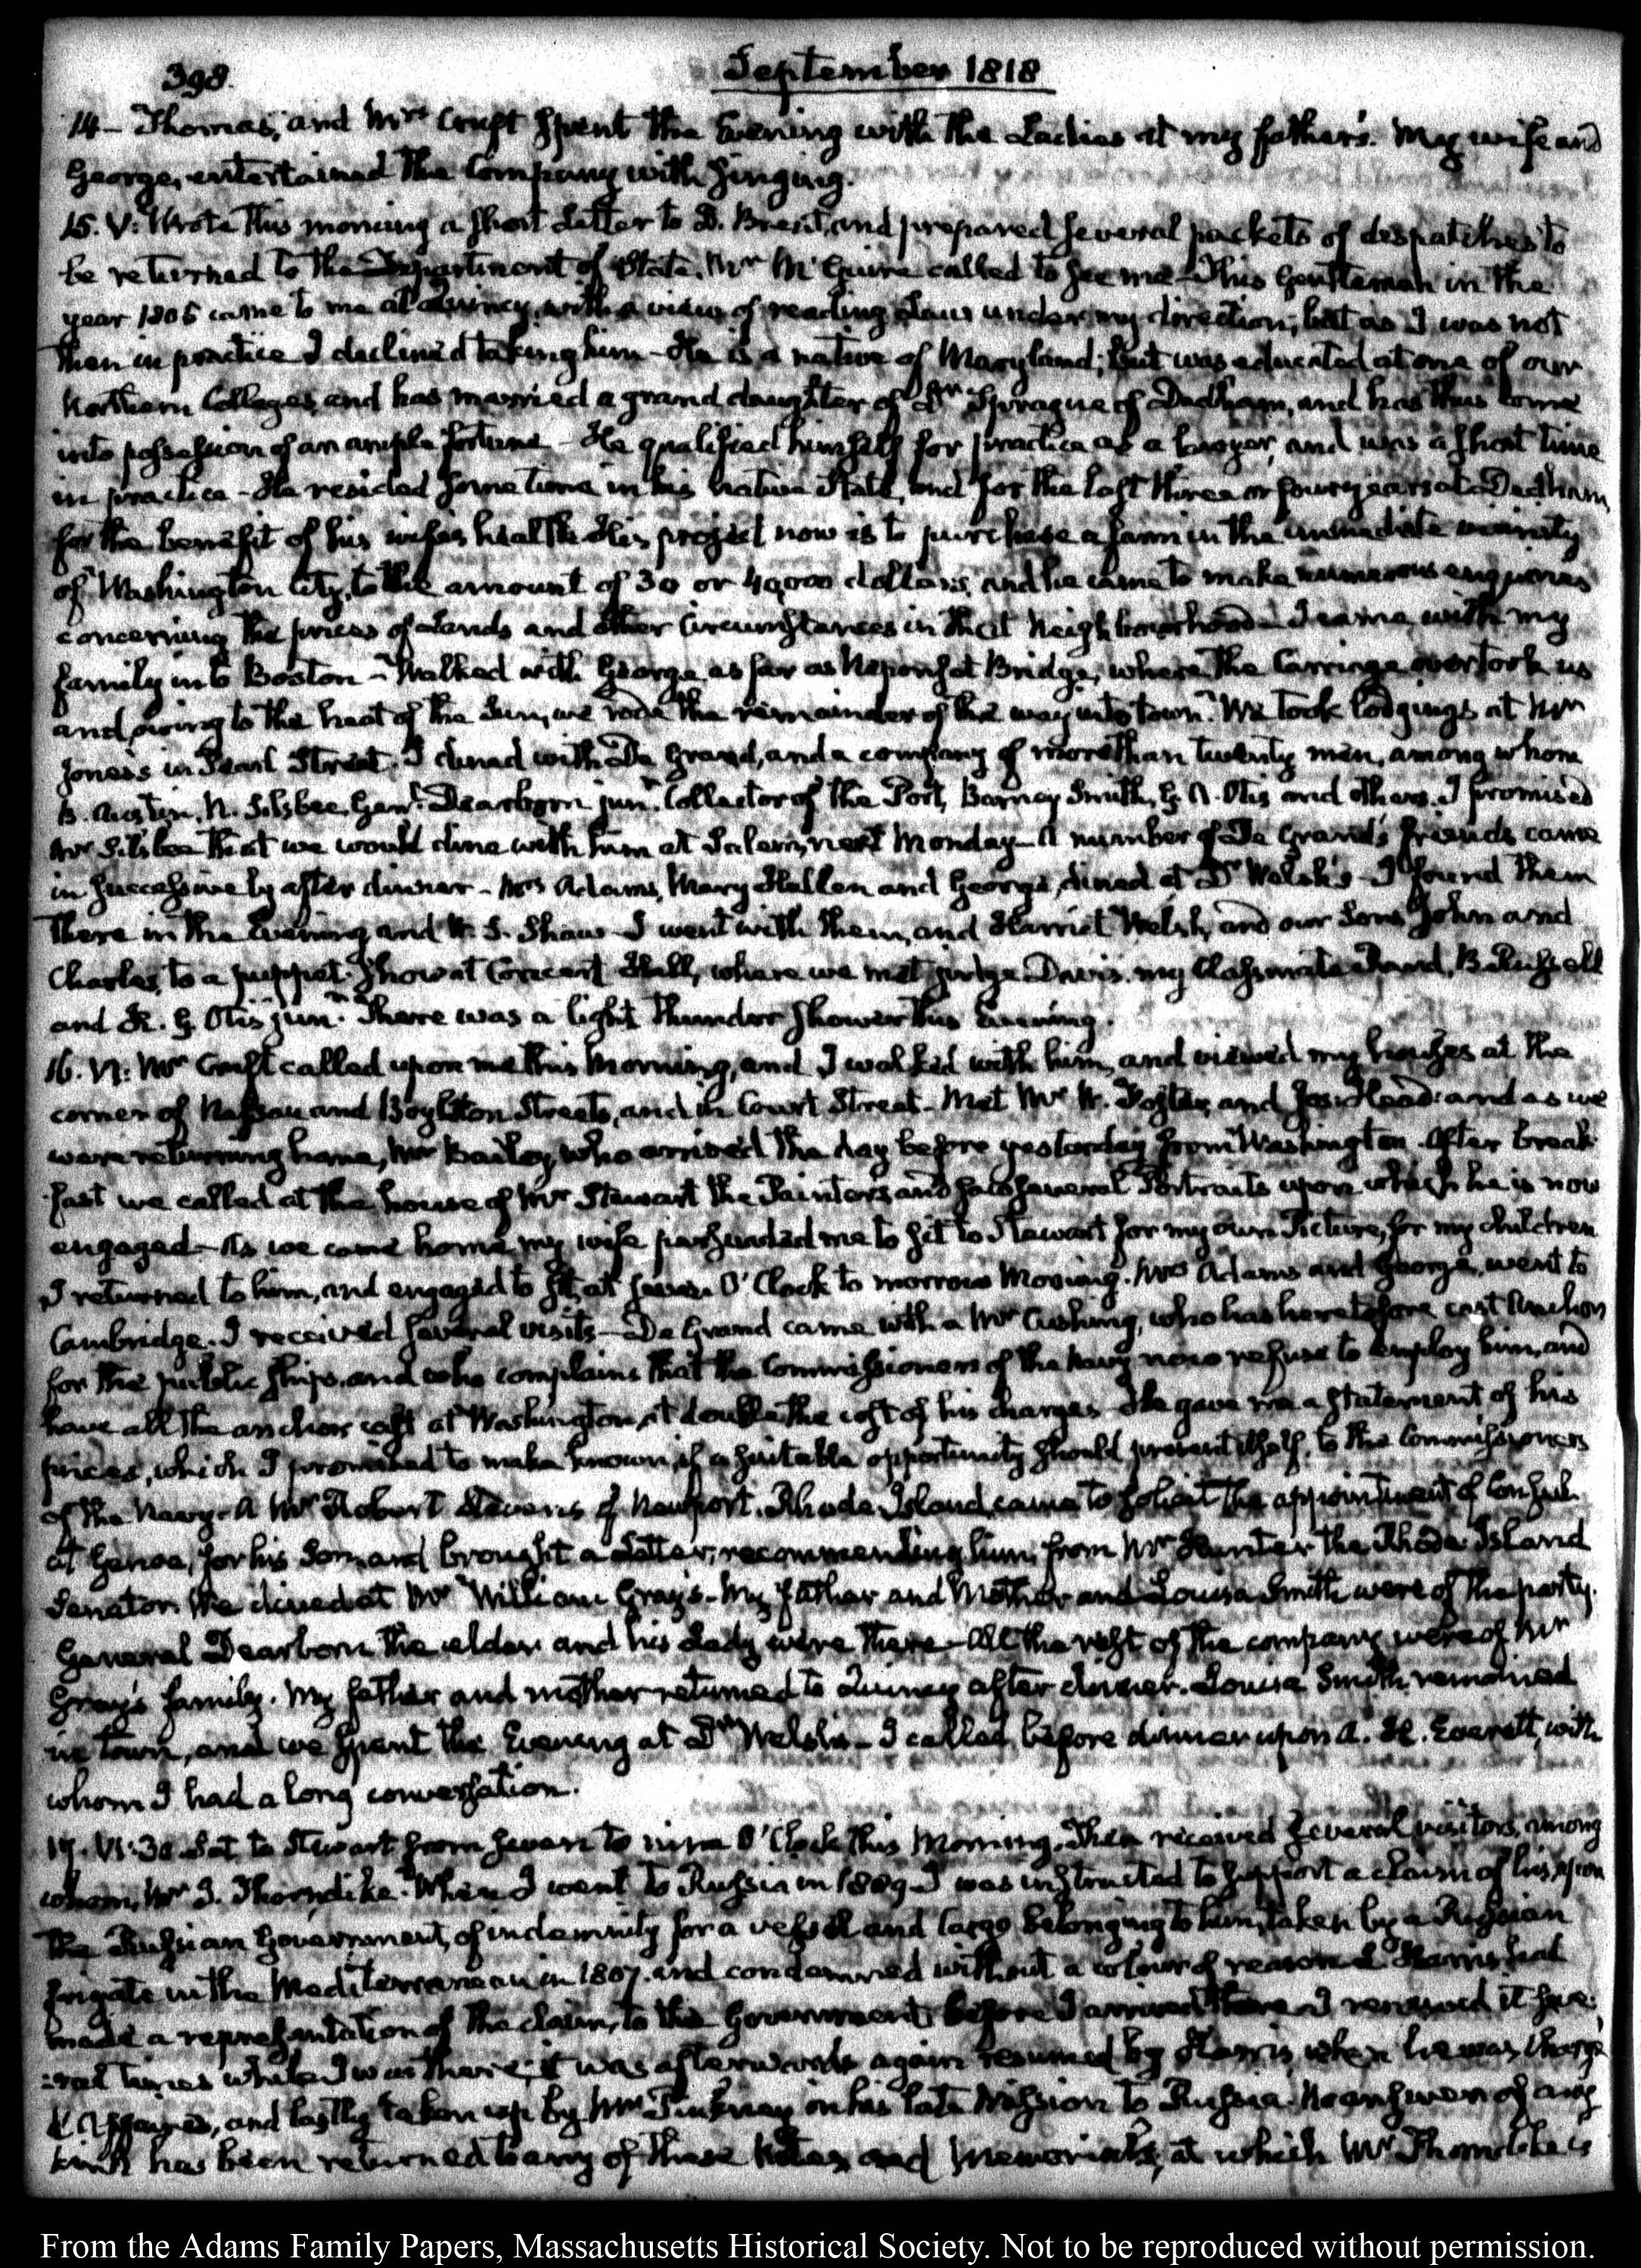 398.
September 1818
14– Thomas, and Mrs Cruft spent the Evening with the Ladies at my father's. My wife and
George, entertained the Company with Singing.
15. V: Wrote this morning a short Letter to D. Brent, and prepared several packets of despatches to
be returned to the Department of State. Mr McGuire called to see me – This Gentleman in the
year 1805 came to me at Quincy, with a view of reading Law under my direction; but as I was not
then in practice I declined taking him – He is a native of Maryland; but was educated at one of our
Northern Colleges, and has married a grand daughter of Dr Sprague of Dedham, and has thus come
into possession of an ample fortune – He qualified himself for practice as a lawyer, and was a short time
in practice – He resided some time in his native State, and for the last three or four years at Dedham,
for the benefit of his wife's health. His project now is to purchase a farm in the immediate vicinity
of Washington City, to the amount of 30 or 40,000 dollars, and he came to make numerous enquiries
concerning the prices of Lands and other Circumstances in that Neighbourhood – I came with my
family into Boston – Walked with George as far as Neponset Bridge, where the Carriage overtook us
and owing to the heat of the Sun, we rode the remainder of the way into town. We took lodgings at Mrs
Jones's in Pearl Street. I dined with De Grand, and a company of more than twenty men, among whom
B. Austin, N. Silsbee, Genl. Dearborn junr. Collector of the Port, Barney Smith, G. A. Otis and others. I promised
Mr Silsbee that we would dine with him at Salem, next Monday – A number of De Grand's friends came
in successively after dinner – Mrs Adams, Mary Hellen and George, dined at Dr Welsh's – I found them
there in the Evening, and W. S. Shaw – I went with them, and Harriet Welsh, and our Sons John and
Charles, to a puppet-Show at Concert Hall, where we met judge Davis, my Classmate Rand, B. Russell
and H. G. Otis junr. There was a light thunder shower this Evening.
16. VI: Mr Cruft called upon me this Morning, and I walked with him, and viewed my houses at the
corner of Nassau and Boylston Streets, and in Court Street – Met Mr W. Foster, and Jos: Head: and as we
were returning home, Mr Bailey, who arrived the day before yesterday from Washington. After break-
fast we called at the house of Mr Stewart the Painter, and saw several Portraits upon which he is now
engaged – As we came home my wife persuaded me to sit to Stewart for my own Picture, for my children
I returned to him, and engaged to sit, at seven O'Clock to morrow Morning. Mrs Adams and George, went to
Cambridge. I received several visits – De Grand came with a Mr Cushing, who has heretofore cast Anchors
for the public ships, and who complains that the Commissioners of the Navy now refuse to employ him, and
have all the anchors cast at Washington, at double the cost of his charges – He gave me a statement of his
prices, which I promised to make known, if a suitable opportunity should present itself, to the Commissioners
of the Navy – A Mr Robert Stevens of Newport. Rhode-Island, came to solicit the appointment of Consul
at Genoa, for his Son, and brought a Letter, recommending him, from Mr Hunter the Rhode-Island
Senator. We dined at Mr William Gray's – My father and Mother and Louisa Smith were of the party.
General Dearborn the elder, and his Lady were there – All the rest of the company were of Mr
Gray's family. My father and mother returned to Quincy after dinner. Louisa Smith remained
in town, and we spent the Evening at Dr Welsh's – I called before dinner upon A. H. Everett, with
whom I had a long conversation.
17. VI:30. Sat to Stewart from seven to nine O'Clock this Morning. Then received several visitors, among
whom, Mr I. Thorndike. When I went to Russia in 1809 I was instructed to support a claim of his, upon
the Russian Government, of indemnity for a vessel and Cargo belonging to him, taken by a Russian
frigate in the Mediterranean in 1807. and condemned without a colour of reason. L. Harris had
made a representation of the claim, to the Government, before I arrived there – I renewed it seve-
:ral times while I was there; it was afterwards again resumed by Harris, when he was Chargé
d'Affaires, and lastly taken up by Mr Pinkney on his late Mission to Russia. No answer of any
kind has been returned to any of these Notes and Memorials, at which Mr Thorndike is
From the Adams Family Papers, Massachusetts Historical Society. Not to be reproduced without permission.